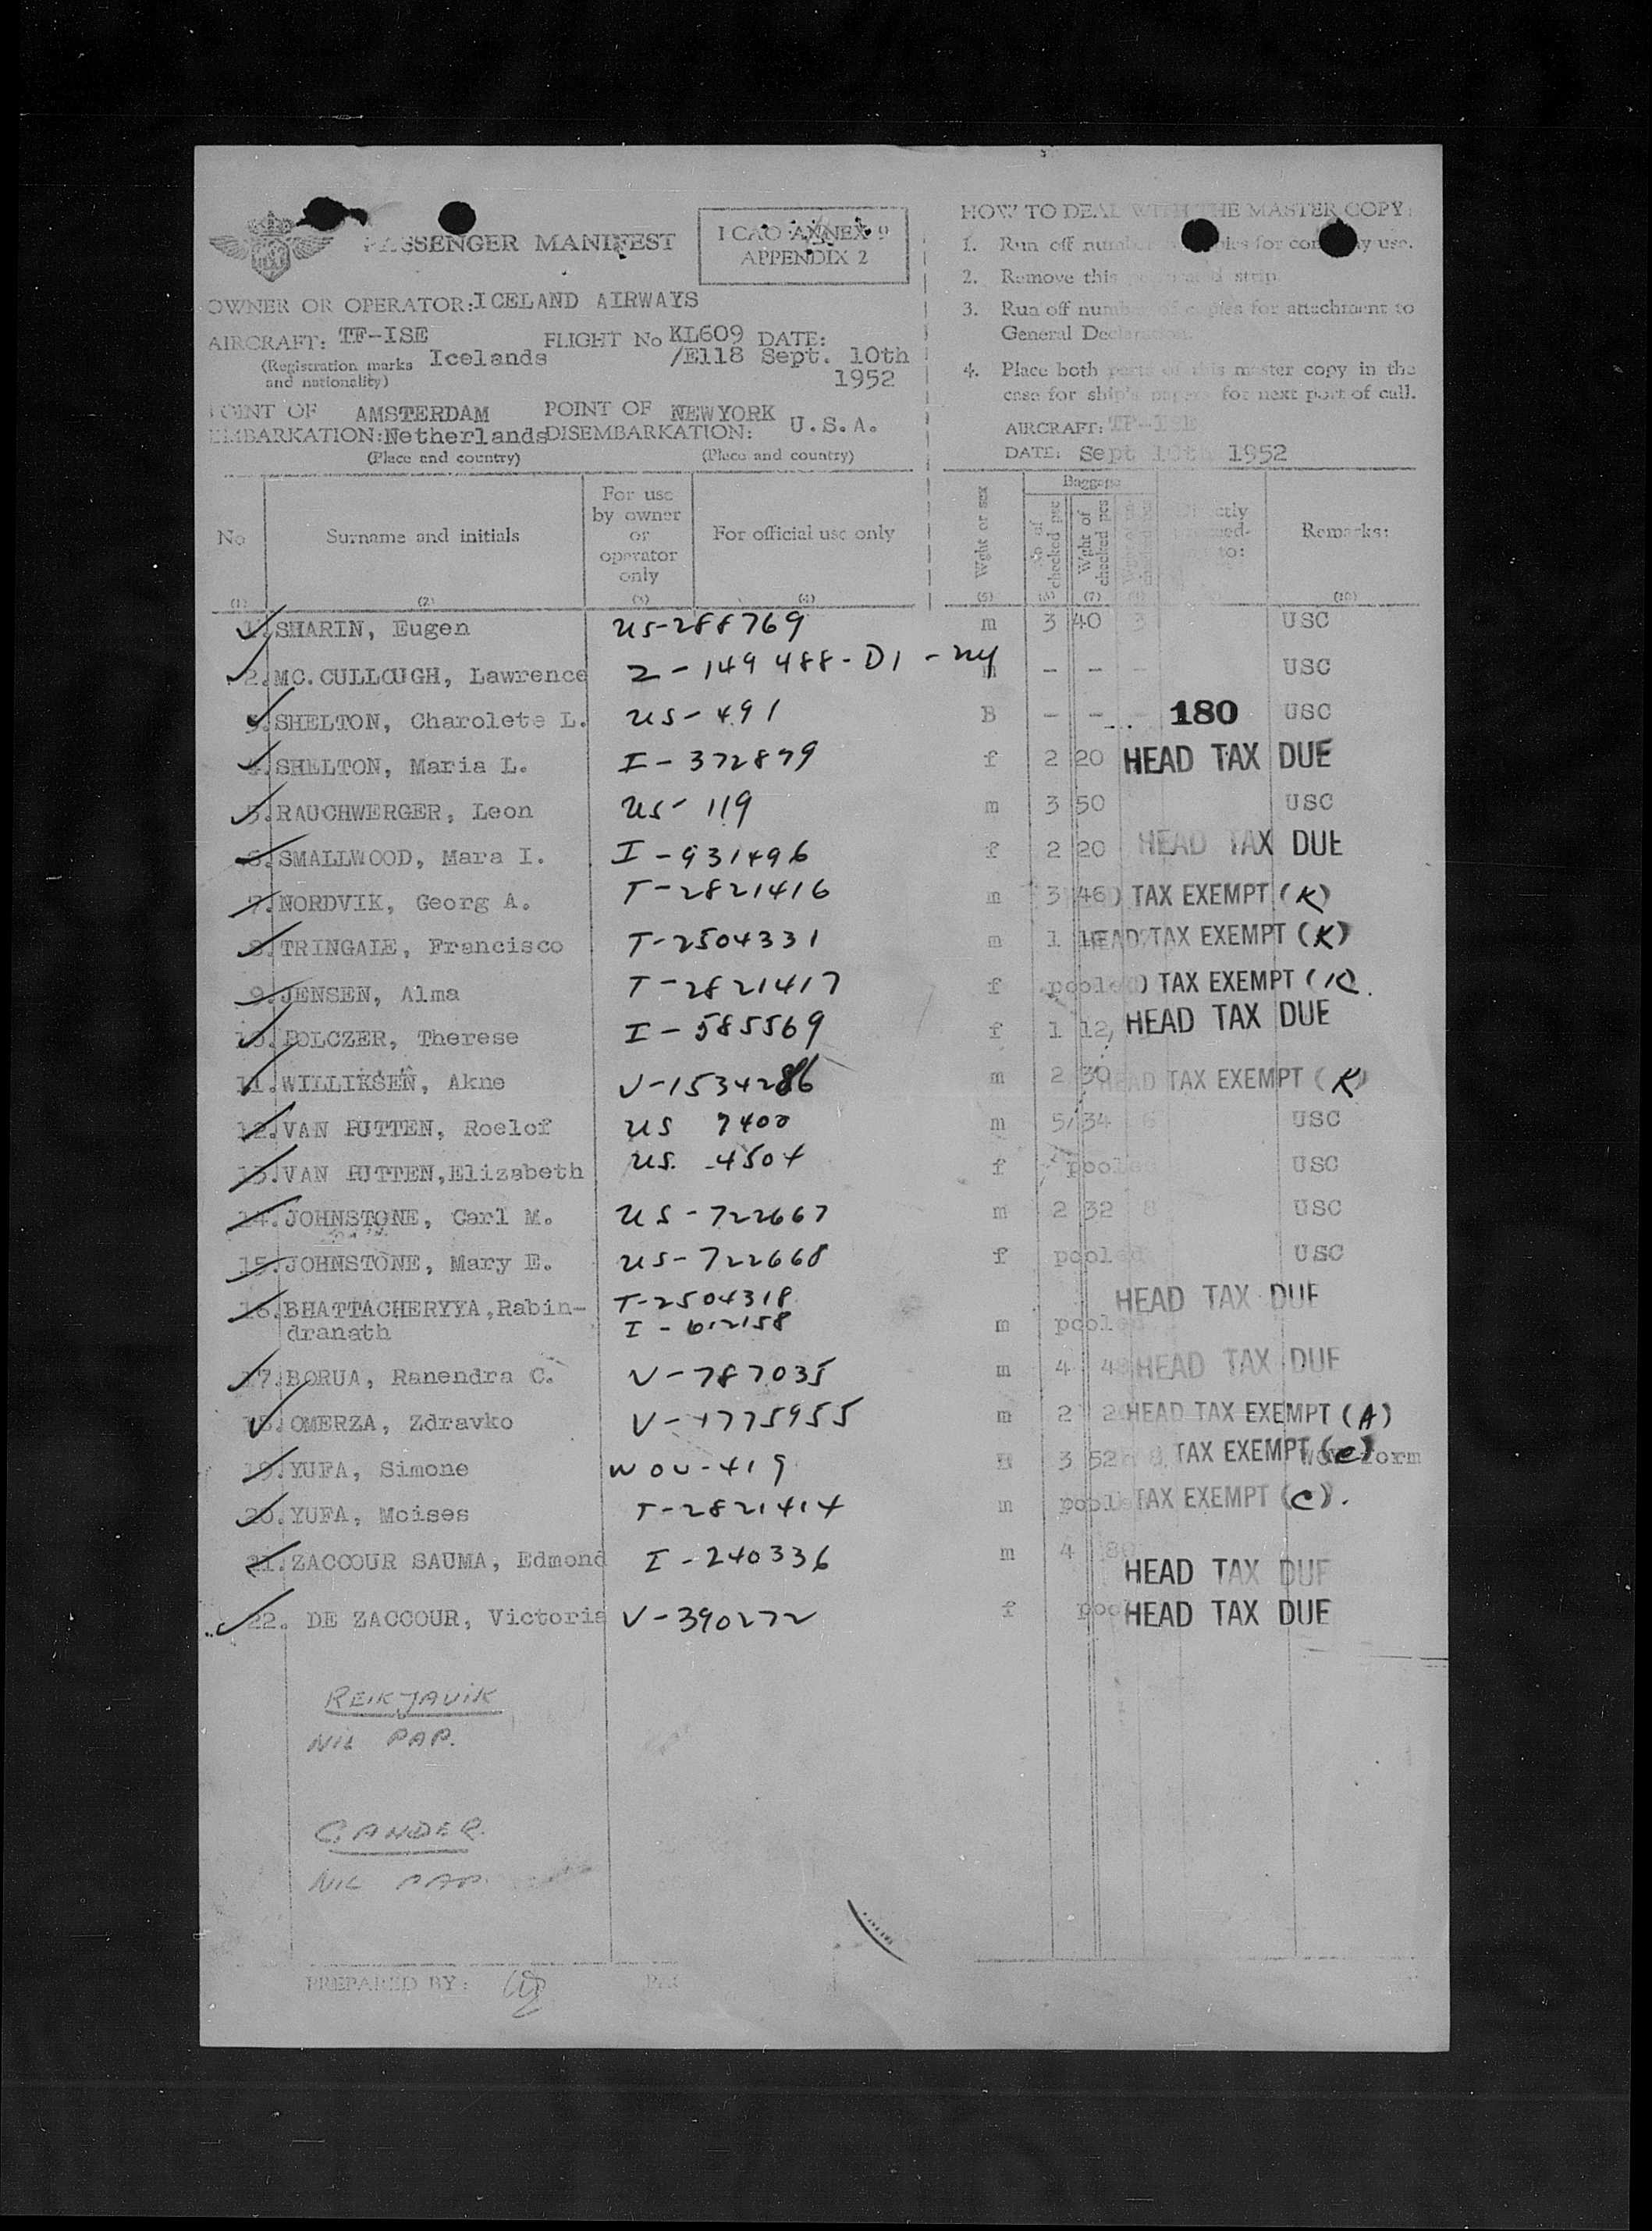 PASSENGER MANIFEST
ICAO ANNEX 9
APPENDIX 2
OWNER OR OPERATOR: ICELAND AIRWAYS
AIRCRAFT: TF-ISE FLIGHT No KL609 DATE:
(Registration marks and nationality) Icelands /E118 Sept. 10th
1952
POINT OF EMBARKATION: AMSTERDAM Netherlands POINT OF DISEMBARKATION: NEWYORK U.S.A.
(Place and country) (Place and country)
HOW TO DEAL WITH THE MASTER COPY:
1. Run off number copies for company use.
2. Remove this strip.
3. Run off number of copies for attachment to
General Declaration.
4. Place both parts of this master copy in the
case for ship's papers for next port of call.
AIRCRAFT: TF-ISE
DATE: Sept 10th 1952
No Surname and initials For use by owner or operator only For official use only Wght or sex Baggage No of checked pcs Wght of checked pcs Remarks:
(1) (2) (3) (4) (5) (6) (7) (10)
1. SHARIN, Eugen US-288769 m 3 40 3 USC
2. MC.CULLOUGH, Lawrence 2-149488-D1-NY m - - USC
3. SHELTON, Charolete L. US-491 B - - 180 USC
4. SHELTON, Maria L. I-372879 f 2 20 HEAD TAX DUE
5. RAUCHWERGER, Leon US-119 m 3 50 USC
6. SMALLWOOD, Mara I. I-931496 f 2 20 HEAD TAX DUE
7. NORDVIK, Georg A. T-2821416 m 3 46 TAX EXEMPT (K)
8. TRINGALE, Francisco T-2504331 m 1 HEAD TAX EXEMPT (K)
9. JENSEN, Alma T-2821417 f pooled TAX EXEMPT (K)
10. POLCZER, Therese I-585569 f 1 12 HEAD TAX DUE
11. WILLIKSEN, Akne V-1534286 m 2 30 HEAD TAX EXEMPT (K)
12. VAN PUTTEN, Roelof US 7400 m 5 34 6 USC
13. VAN PUTTEN, Elizabeth US. 4504 f pooled USC
14. JOHNSTONE, Carl M. US-722667 m 2 32 8 USC
15. JOHNSTONE, Mary E. US-722668 f pooled USC
16. BHATTACHERYYA, Rabin- T-2504318 HEAD TAX DUE
dranath I-612158 m pooled
17. BORUA, Ranendra C. V-787035 m 4 HEAD TAX DUE
18. OMERZA, Zdravko V-1775955 m 2 HEAD TAX EXEMPT (A)
19. YUFA, Simone WOV-419 3 52 TAX EXEMPT (C) wov form
20. YUFA, Moises T-2821414 m pooled TAX EXEMPT (C).
21. ZACCOUR SAUMA, Edmond I-240336 m 4 80 HEAD TAX DUE
22. DE ZACCOUR, Victoria V-390272 f HEAD TAX DUE
REIKJAVIK
NIL PAP.
GANDER
NIL PAP.
PREPARED BY: